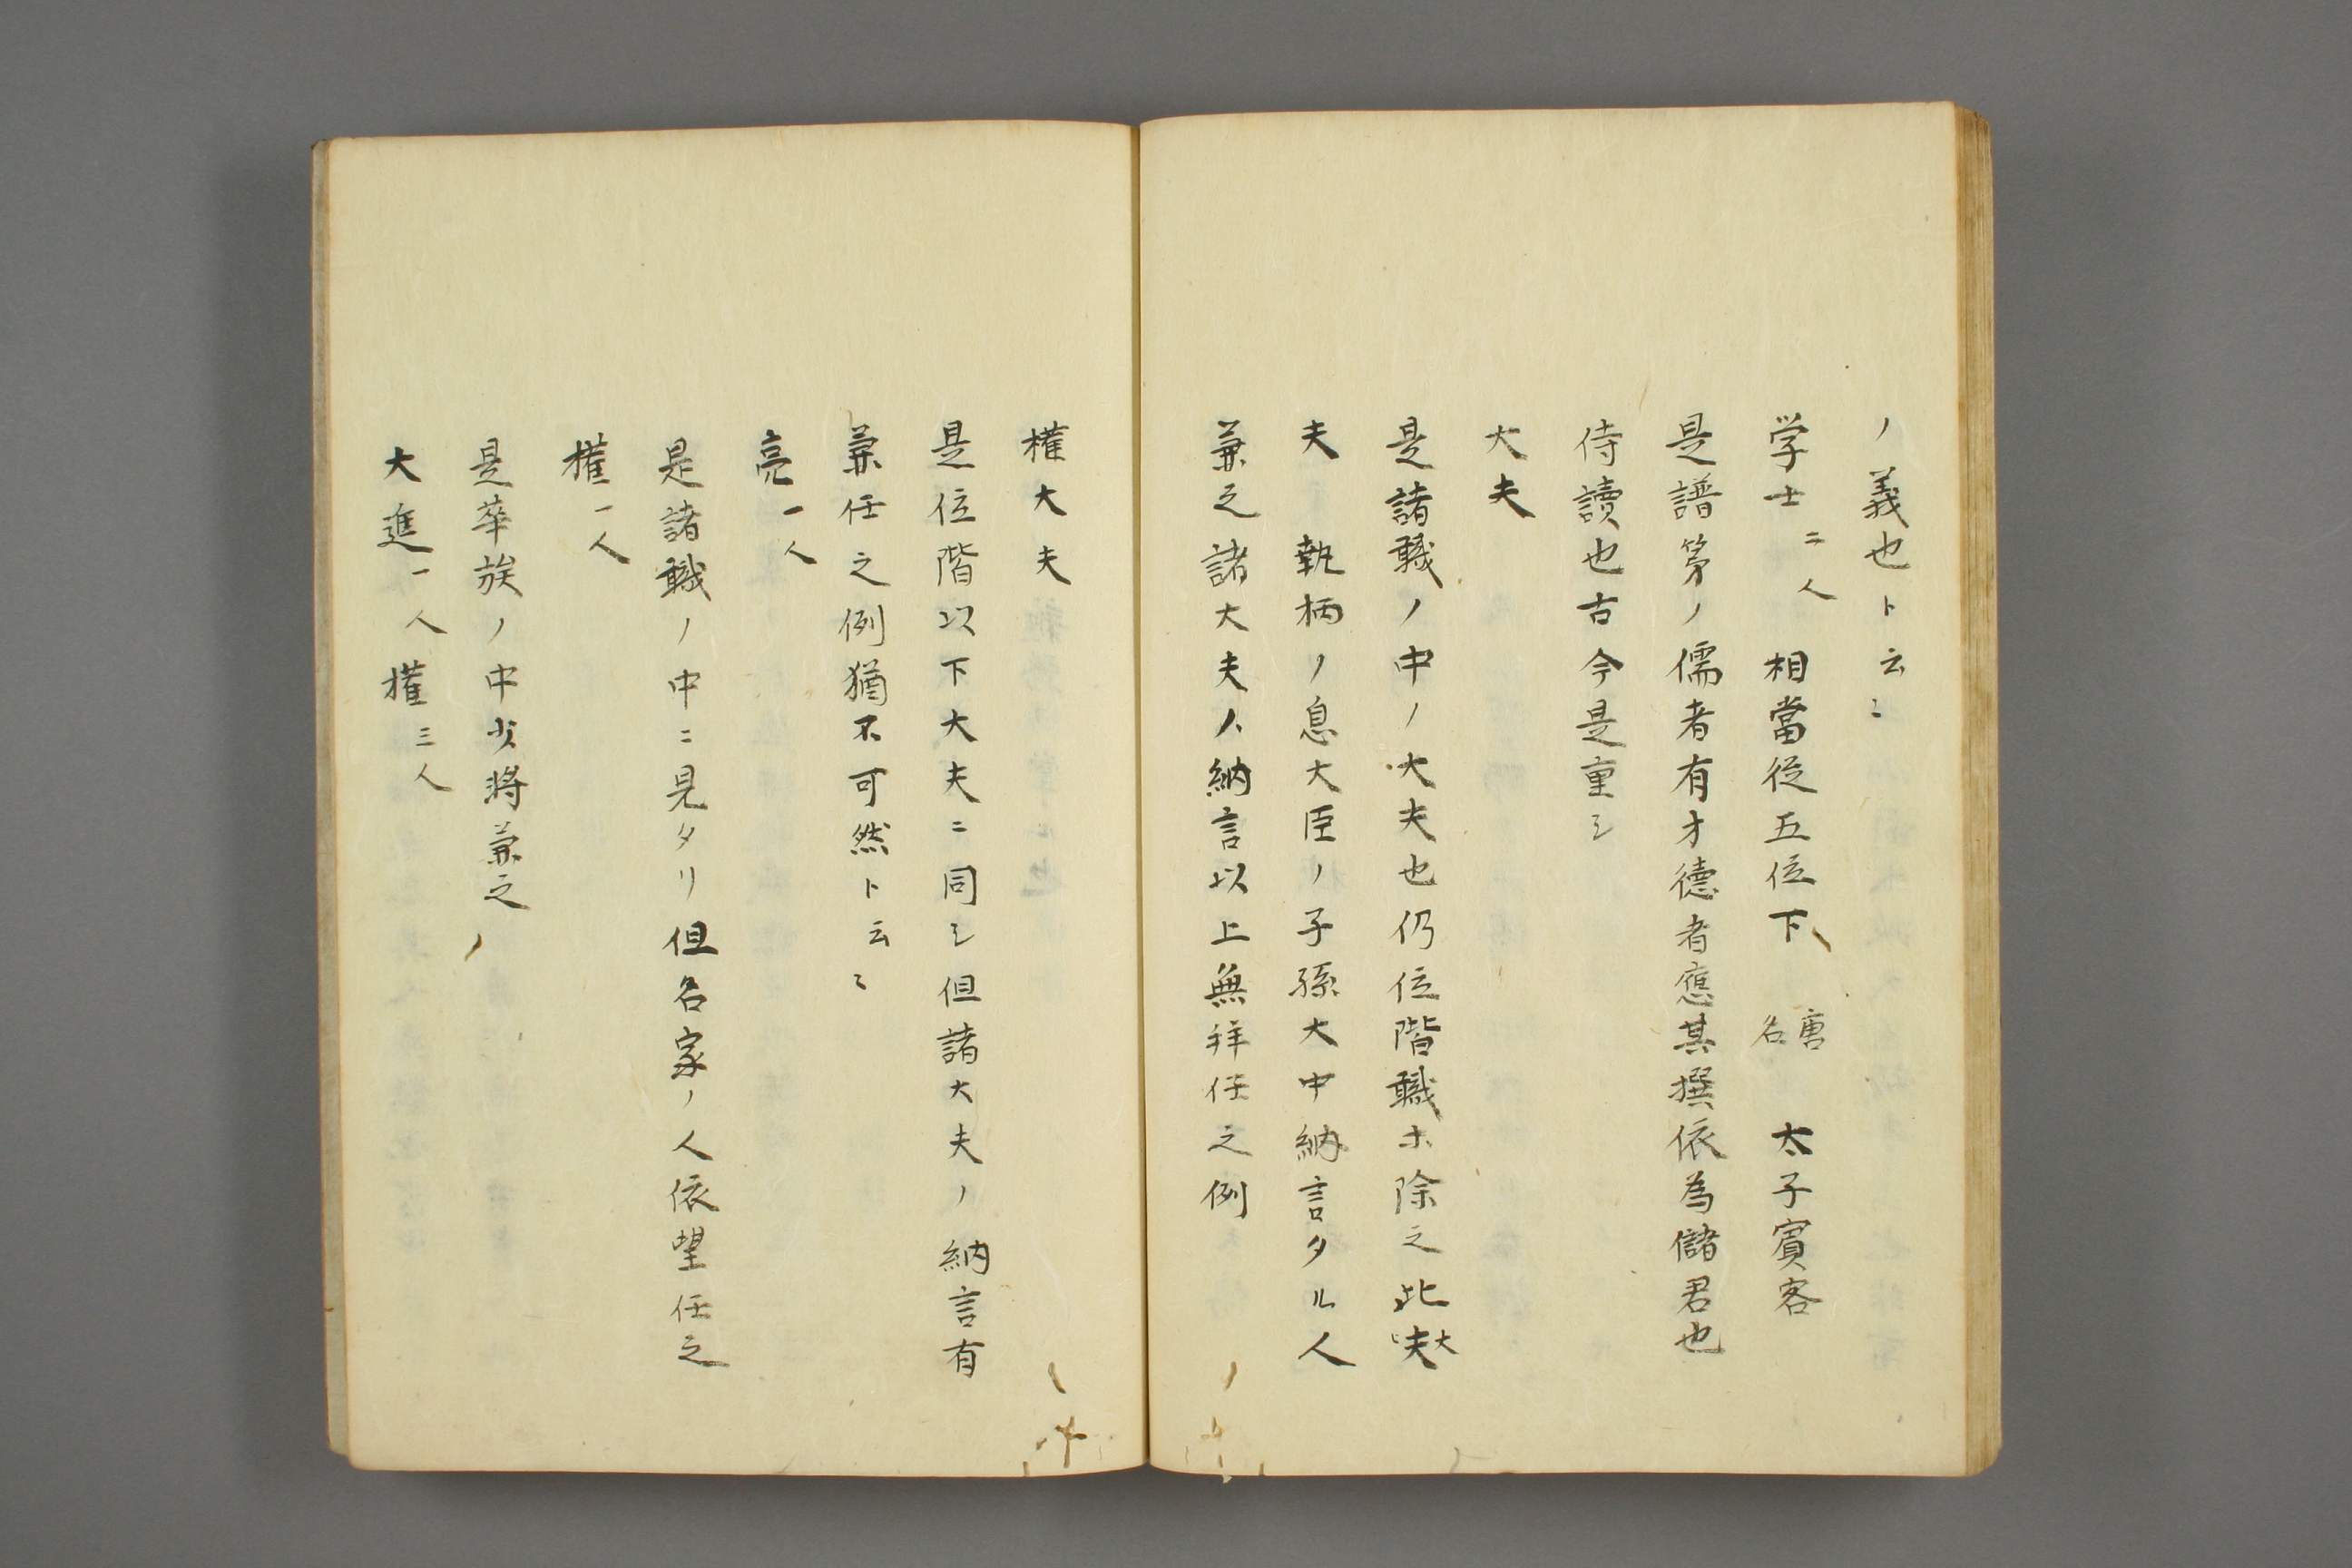 ノ義也ト云〻
学士二人 相當従五位下 唐名 太子賓客
是譜第ノ儒者有才徳者應其撰依為儲君也
侍讀也古今是重シ
大夫
是諸職ノ中ノ大夫也仍位階職ホ除之此大夫
夫 執柄ノ息大臣ノ子孫大中納言タル人
兼之諸大夫ノ納言以上無拝任之例
権大夫
是位階以下大夫ニ同シ但諸大夫ノ納言有
兼任之例猶不可然ト云〻
亮一人
是諸職ノ中ニ見タリ但名家ノ人依望任之
権一人
是華族ノ中少将兼之
大進一人権三人